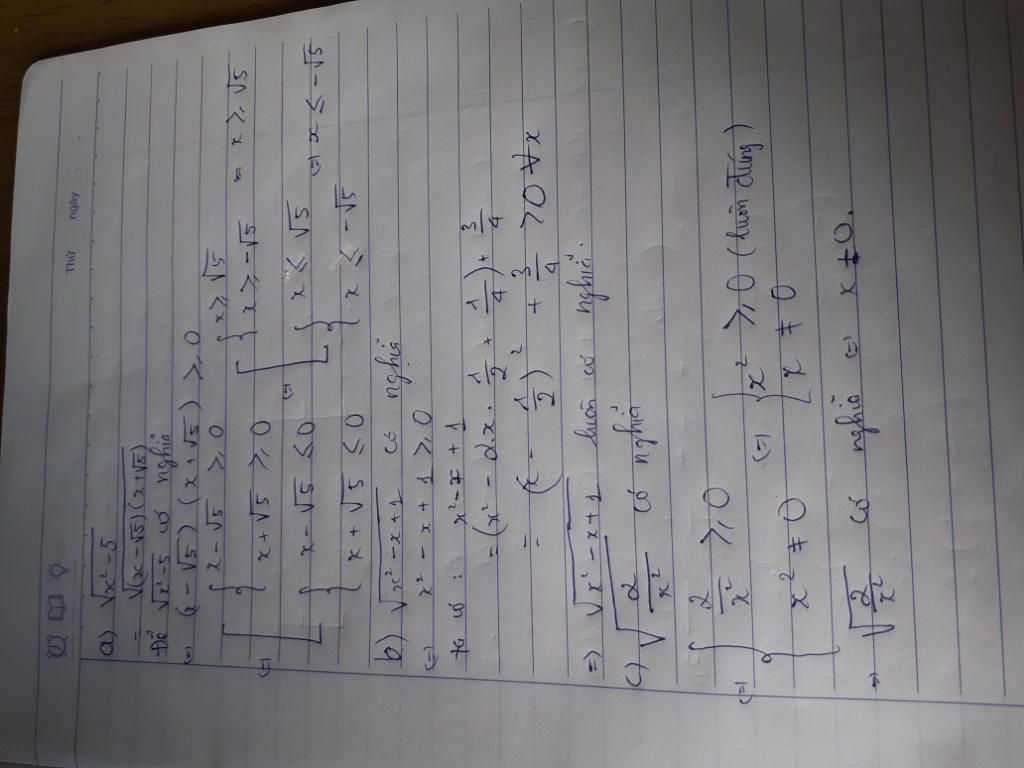 Thứ ngày
a) √(x²-5)
= √((x-√5)(x+√5))
Để √(x²-5) có nghĩa
(=) (x-√5)(x+√5) ≥ 0
(=) [ { x-√5 ≥ 0 (=) [ { x ≥ √5
x+√5 ≥ 0 x ≥ -√5 = x ≥ √5
{ x-√5 ≤ 0 { x ≤ √5
x+√5 ≤ 0 x ≤ -√5 (=) x ≤ -√5
b) √(x²-x+1) có nghĩa
(=) x²-x+1 ≥ 0
ta có: x²-x+1
= (x² - 2x.1/2 + 1/4) + 3/4
= (x - 1/2)² + 3/4 > 0 ∀x
=) √(x²-x+1) luôn có nghĩa.
c) √(2/x²) có nghĩa
(=) { 2/x² ≥ 0 (=) { x² ≥ 0 (luôn đúng)
x² ≠ 0 x ≠ 0
=) √(2/x²) có nghĩa (=) x ≠ 0.